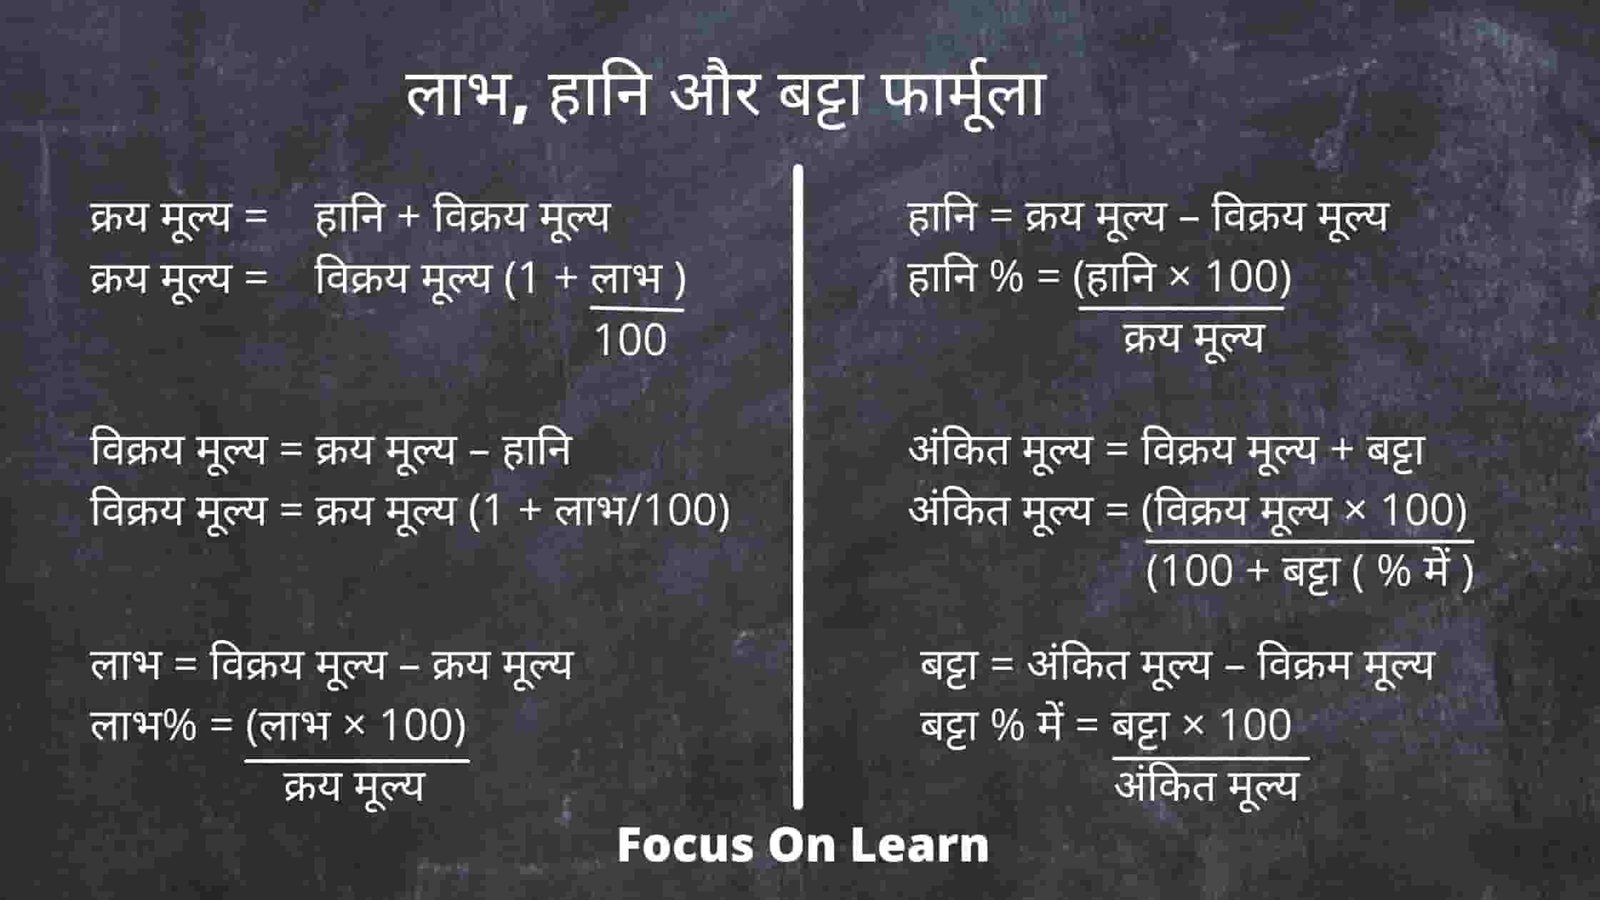 लाभ, हानि और बट्टा फार्मूला
क्रय मूल्य = हानि + विक्रय मूल्य
क्रय मूल्य = विक्रय मूल्य (1 + लाभ )
100
विक्रय मूल्य = क्रय मूल्य – हानि
विक्रय मूल्य = क्रय मूल्य (1 + लाभ/100)
लाभ = विक्रय मूल्य – क्रय मूल्य
लाभ% = (लाभ × 100)
क्रय मूल्य
हानि = क्रय मूल्य – विक्रय मूल्य
हानि % = (हानि × 100)
क्रय मूल्य
अंकित मूल्य = विक्रय मूल्य + बट्टा
अंकित मूल्य = (विक्रय मूल्य × 100)
(100 + बट्टा ( % में )
बट्टा = अंकित मूल्य – विक्रम मूल्य
बट्टा % में = बट्टा × 100
अंकित मूल्य
Focus On Learn